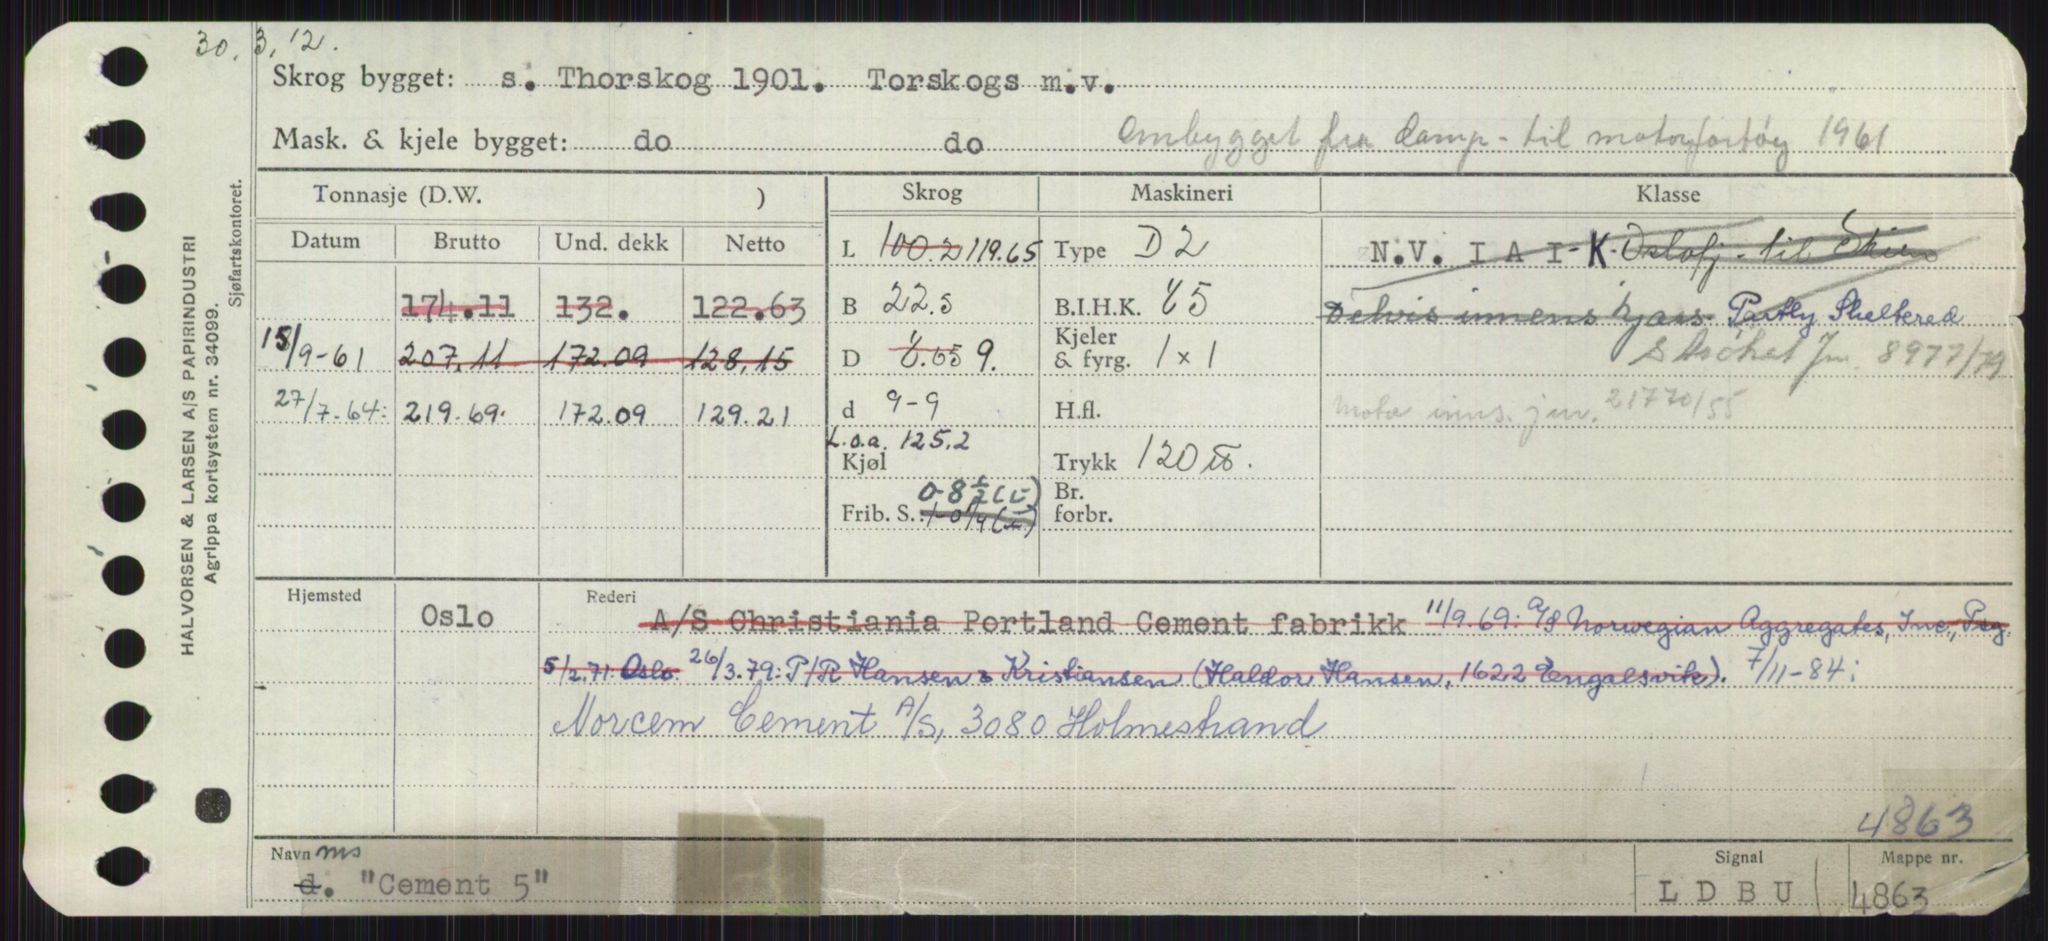 30.3.12.
Skrog bygget: s. Thorskog 1901. Torskogs m.v.
Mask. & kjele bygget: do do Ombygget fra damp- til motorfartøy 1961
Tonnasje (D.W. ) Skrog Maskineri Klasse
Datum Brutto Und. dekk Netto L 100.2 119.65 Type D2 N.V. I A I-K Oslofj. til Skien
174.11 132. 122.63 B 22.5 B.I.H.K. 45 Delvis innens kjærs. Partly Sheltered
15/9-61 207.11 172.09 128.15 D 8.65 9. Kjeler & fyrg. 1x1 Jnr. 8977/79
27/7-64: 219.69. 172.09 129.21 d 9-9 H.fl. Motor inns. jnr. 21770/55
L.o.a. 125.2
Kjøl Trykk 120 lb.
0-8 1/2 (L) Br.
Frib. S. 1-0 1/4 forbr.
Hjemsted Oslo Rederi A/S Christiania Portland Cement fabrikk 11/9.69: A/S Norwegian Aggregates, Inc., Psg.
5/2.71: Oslo. 26/3.79: P/R Hansen & Kristiansen (Haldor Hansen, 1622 Engalsvik). 7/11-84:
Norcem Cement A/S, 3080 Holmestrand
4863
Navn ms Signal Mappe nr.
d. "Cement 5" L D B U 4863
HALVORSEN & LARSEN A/S PAPIRINDUSTRI
Agrippa kortsystem nr. 34099.
Sjøfartskontoret.